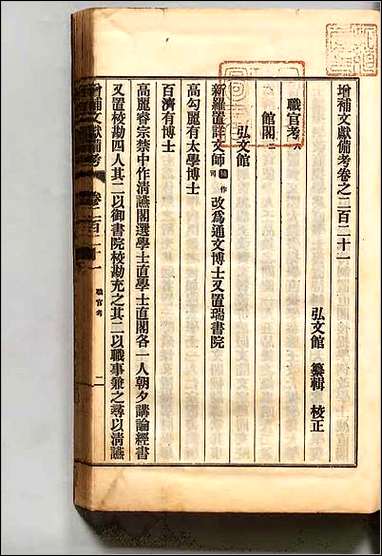 增補文獻備考卷之二百二十一
弘文館 纂輯 校正
職官考八
館閣二
弘文館
新羅置詳文師 改爲通文博士又置瑞書院
高勾麗有太學博士
百濟有博士
高麗睿宗禁中作清讌閣選學士直學士直閣各一人朝夕講論經書
又置校勘四人其二以御書院校勘充之其二以職事兼之尋以清讌
增補文獻備考 卷二百二十一 職官考 一